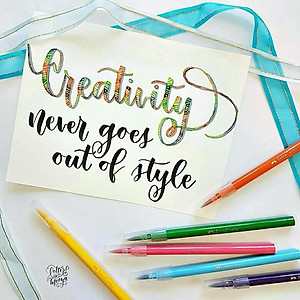 Creativity
never goes
out of style